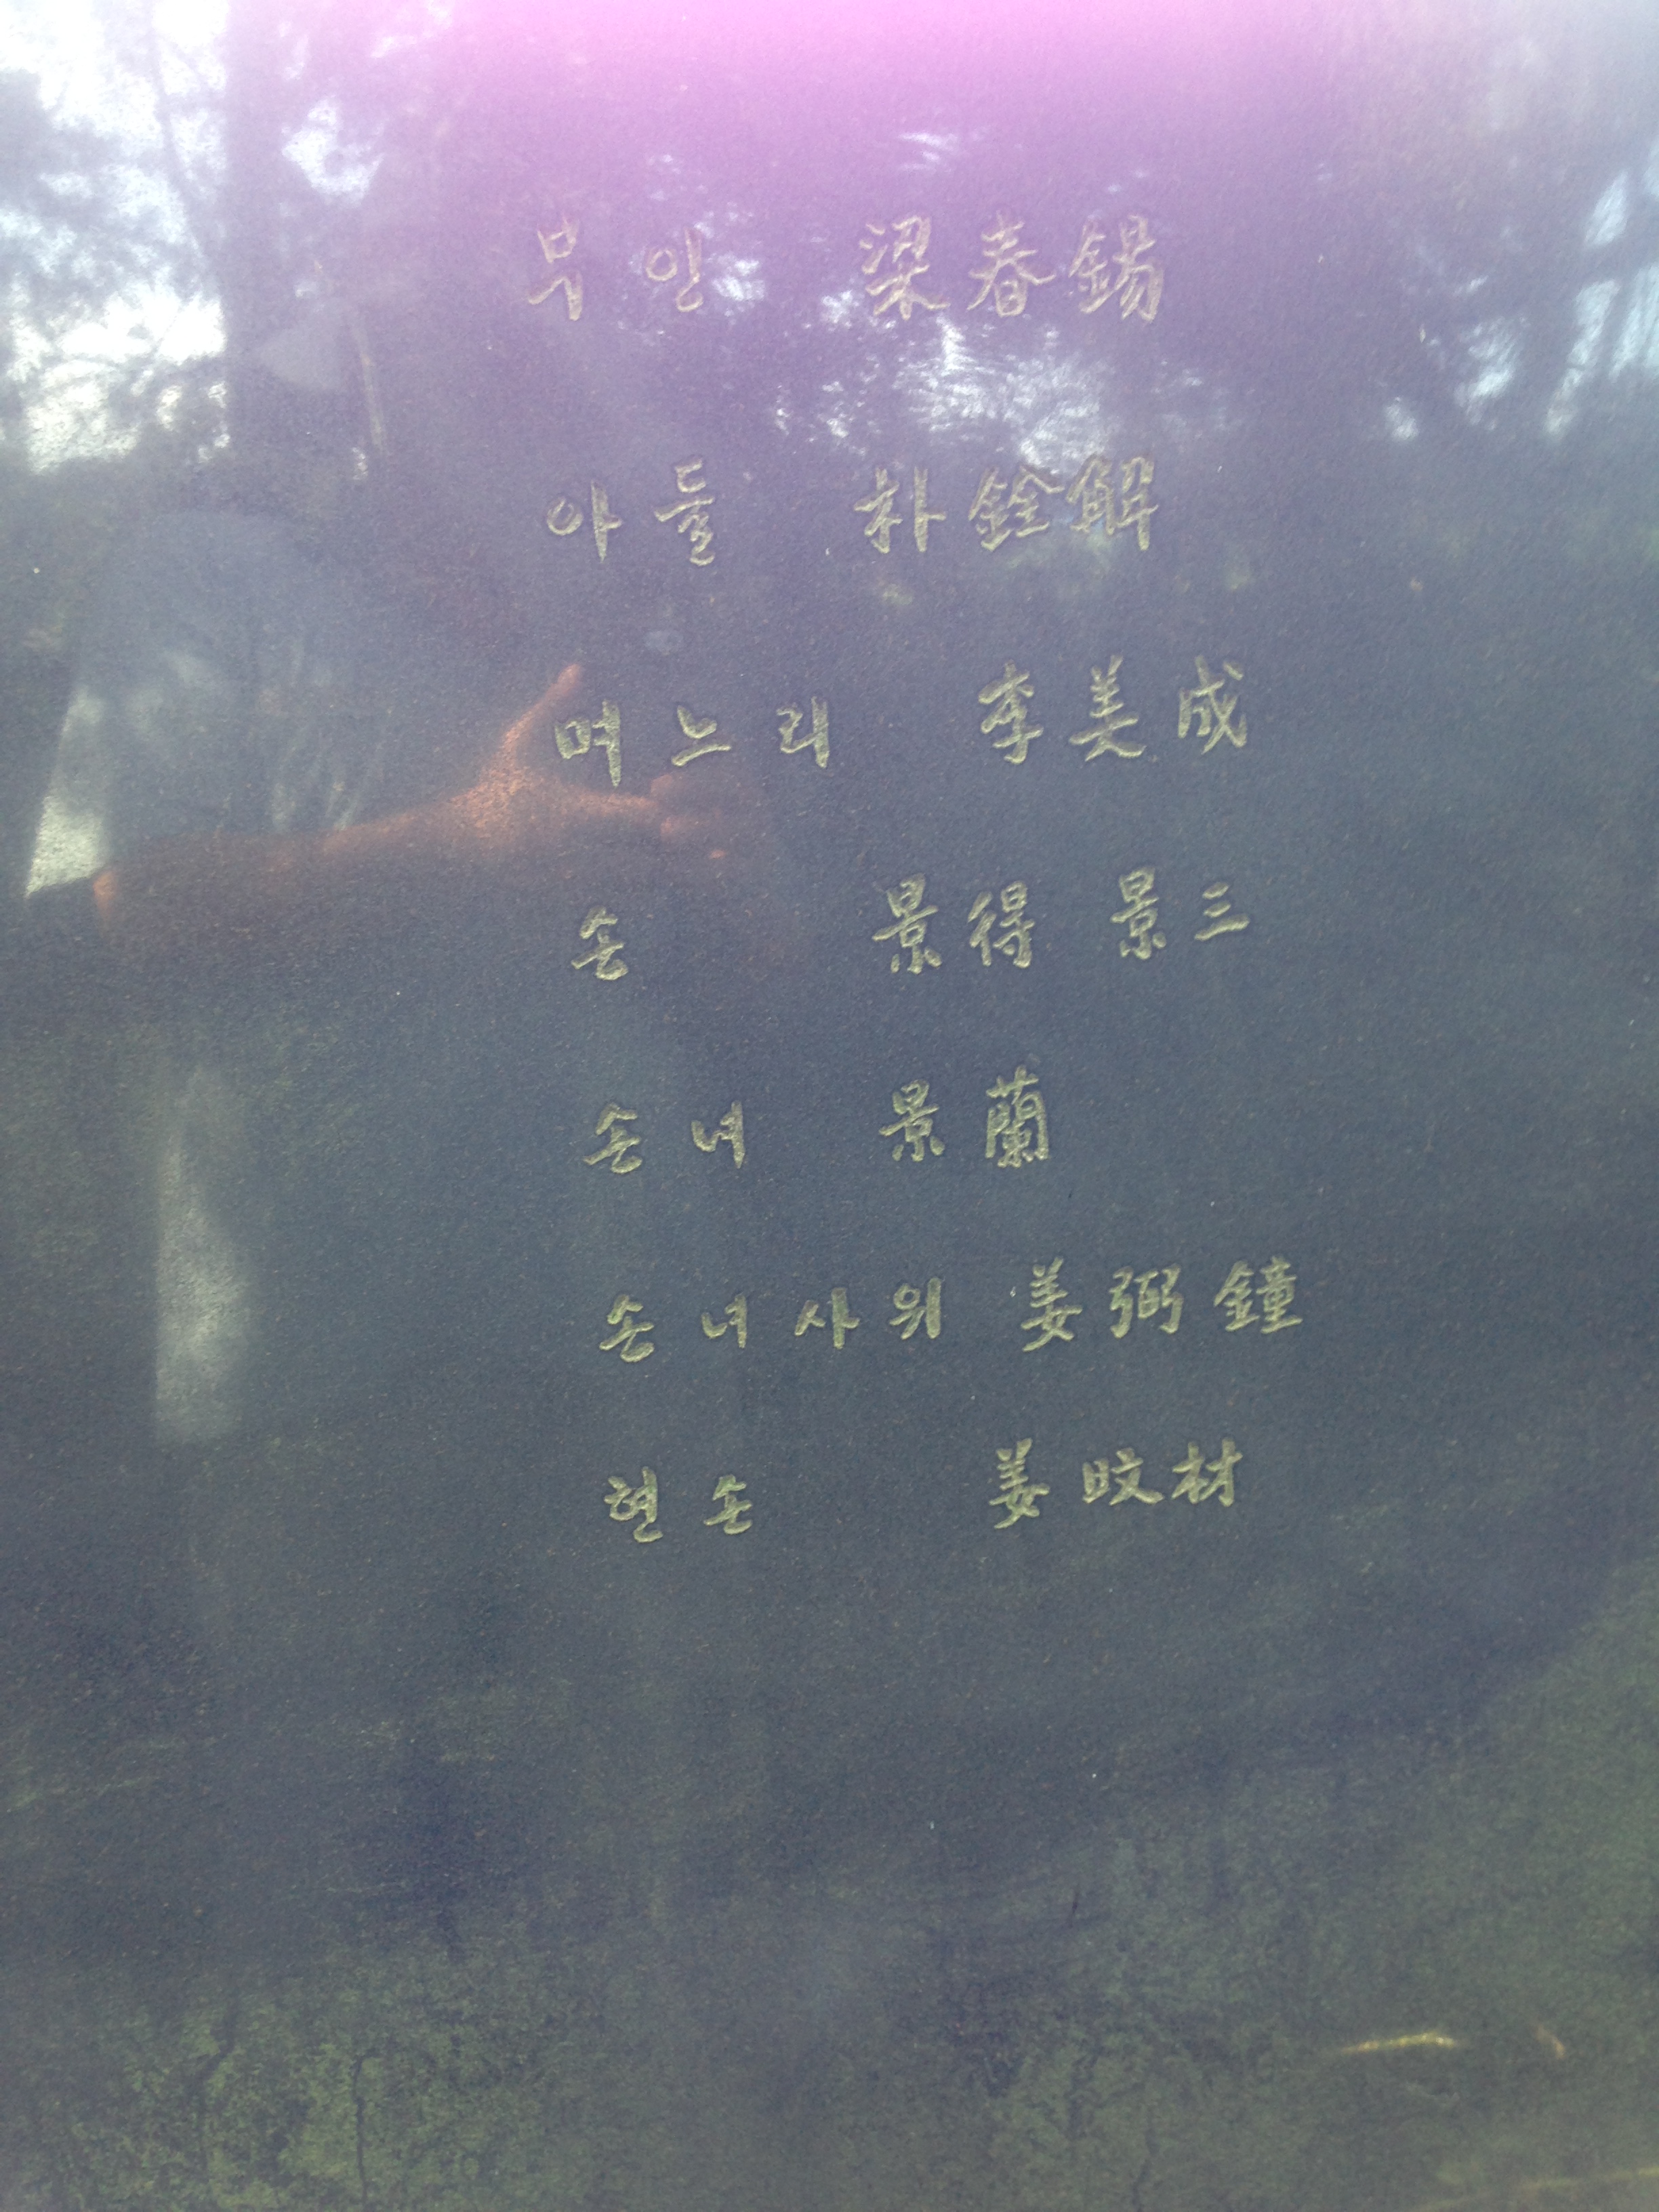 부인 梁春錫
아들 朴銓解
며느리 李美成
손 景得 景三
손녀 景蘭
손녀사위 姜弼鐘
현손 姜旼材